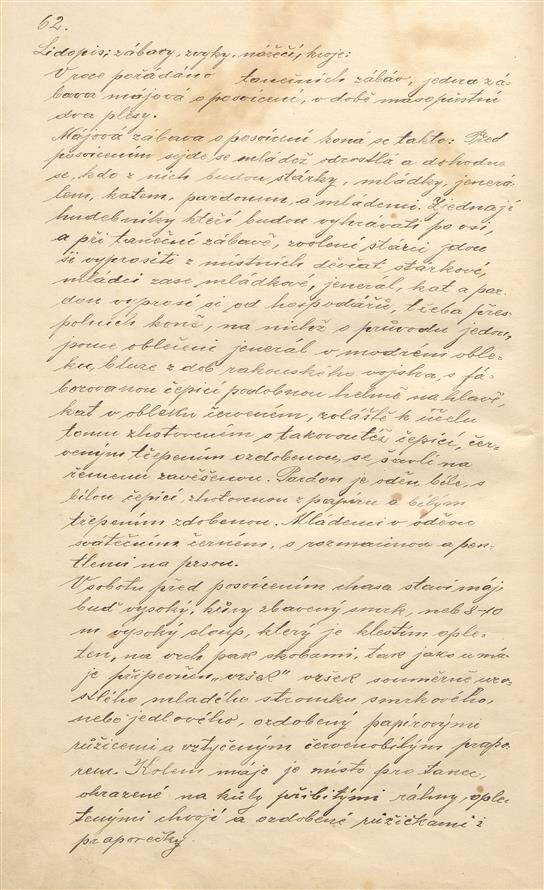 62.
Lidopis; zábavy, zvyky, nářečí, kroje:
V roce pořádáno tanečních zábav, jedna zá-
bava májová o posvícení, v době masopustní
dva plesy.
Májová zábava o posvícení koná se takto: Před
posvícením sejde se mládež odrostlá a dohodne
se, kdo z nich budou stárky, mládky, jenerá-
lem, katem, pardonem, a mladenci. Zjednají
hudebníky kteří budou vyhrávati po vsi,
a při taneční zábavě, zvolení stárci jdou
si vyprositi z místních děvčat stárkové,
mládci zase mládkové, jenerál, kat a par-
don vyprosí si od hospodářů, třeba přes-
polních koně, na nichž v průvodu jedou,
jsouce oblečeni jenerál v modrém oble-
ku, bluze z dob rakouského vojska, s fá-
borovanou čepicí podobnou helmě na hlavě,
kat v obleku červeném, zvláště k účelu
tomu zhotoveném s takovoutéž čepicí, čer-
veným třepením ozdobenou, se šavlí na
řemenu zavěšenou. Pardon je oděn, bíle, s
bílou čepicí, zhotovenou z papíru a bílým
třepením zdobenou. Mládenci v oděvu
svátečním černém, s rozmarinou a pen-
tlemi na prsou.
V sobotu před posvícením chasa staví máj
buď vysoký, kůry zbavený smrk, neb 8-10
m vysoký sloup, který je klestím ople-
ten, na vrch pak skobami, tak jako u má-
je připevněn „vršek" vršek souměrně vzro-
stlého mladého stromku smrkového,
nebo jedlového, ozdobený papírovými
růžicemi a vztyčeným červenobílým prapo-
rem. Kolem máje je místo pro tanec,
ohrazené na kůly přibitými ráhny, ople-
tenými chvojí a ozdobené růžičkami i
praporečky.